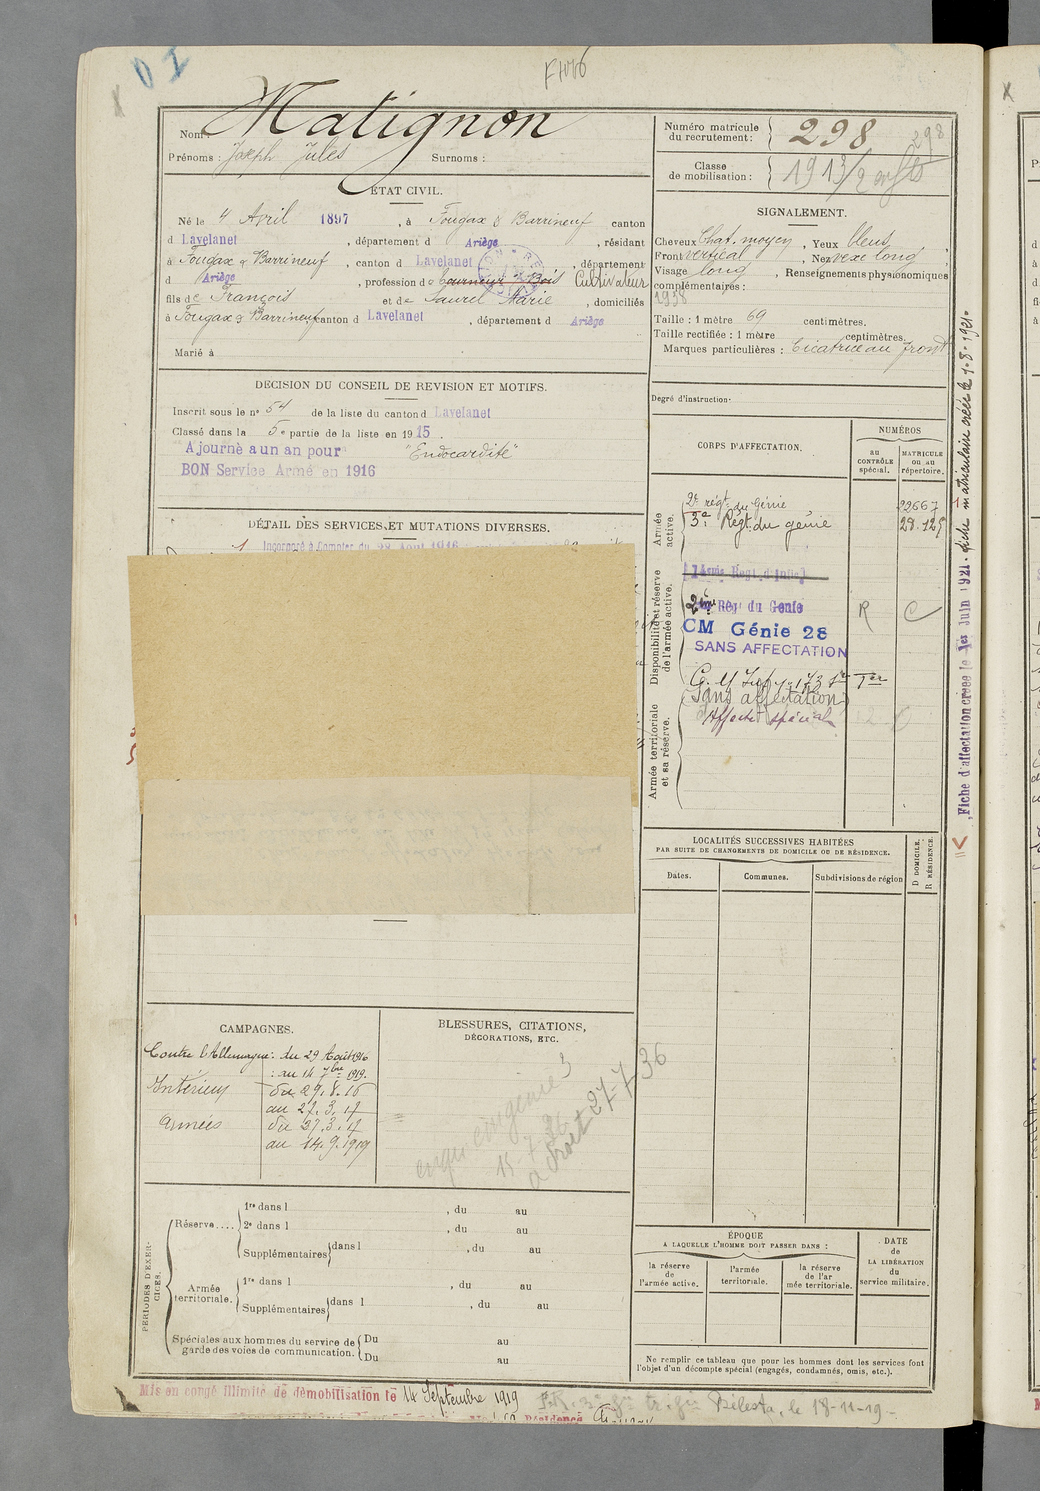 OI
Nom : Matignon
Prénoms : Joseph Jules Surnoms :
ÉTAT CIVIL.
Né le 4 Avril 1897, à Fougax & Barrineuf canton
d Lavelanet, département d Ariège, résidant
à Fougax & Barrineuf, canton d Lavelanet, département
d Ariège, profession de tourneur s/ Bois Cultivateur
fils de François et de Laurel Marie, domiciliés
à Fougax & Barrineuf, canton Lavelanet, département d Ariège
Marié à
DÉCISION DU CONSEIL DE REVISION ET MOTIFS.
Inscrit sous le n° 54 de la liste du canton d Lavelanet
Classé dans la 5e partie de la liste en 1915.
Ajourné a un an pour "Endocardite"
BON Service Armé en 1916
DÉTAIL DES SERVICES ET MUTATIONS DIVERSES.
Incorporé à Compter du 28 Août 1916
Numéro matricule du recrutement : 298 298
Classe de mobilisation : 1913/2 enfts
SIGNALEMENT.
Cheveux Chat. moyen, Yeux bleus
Front vertical, Nez vexe long
Visage long, Renseignements physionomiques
complémentaires :
1938
Taille : 1 mètre 69 centimètres.
Taille rectifiée : 1 mètre centimètres.
Marques particulières : Cicatrice au front
Degré d'instruction.
CORPS D'AFFECTATION.
NUMÉROS
au CONTRÔLE spécial.
MATRICULE ou au répertoire.
Armée active.
2e régt du Génie 22667
3e Régt du génie 28.125
Disponibilité et réserve de l'armée active.
Régt d'Inf
2e Rég' du Genie R C
CM Génie 28
SANS AFFECTATION
Armée territoriale et sa réserve.
Sans affectation
Affecté spécial
Fiche d'affectation créée le 1er Juin 1921. fiche matriculaire créée le 1.8.1921.
LOCALITÉS SUCCESSIVES HABITÉES
PAR SUITE DE CHANGEMENTS DE DOMICILE OU DE RÉSIDENCE.
Dates. Communes. Subdivisions de région
D DOMICILE. R RÉSIDENCE.
CAMPAGNES.
Contre l'Allemagne : du 29 Août 1916
: au 14 7bre 1919.
Intérieur du 29.8.16
au 27.3.17
Armées du 27.3.17
au 14.9.1919
BLESSURES, CITATIONS,
DÉCORATIONS, ETC.
15-7-36
a droit 27-7-36
PÉRIODES D'EXERCICES.
Réserve.... 1re dans l , du au
2e dans l , du au
Supplémentaires dans l , du au
Armée territoriale. 1re dans l , du au
Supplémentaires dans l , du au
Spéciales aux hommes du service de garde des voies de communication. Du au
Du au
ÉPOQUE
A LAQUELLE L'HOMME DOIT PASSER DANS :
la réserve de l'armée active.
l'armée territoriale.
la réserve de l'armée territoriale.
DATE de LA LIBÉRATION du service militaire.
Ne remplir ce tableau que pour les hommes dont les services font
l'objet d'un décompte spécial (engagés, condamnés, omis, etc.).
Mis en congé illimité de démobilisation le 14 Septembre 1919
Bélesta, le 18-11-19-